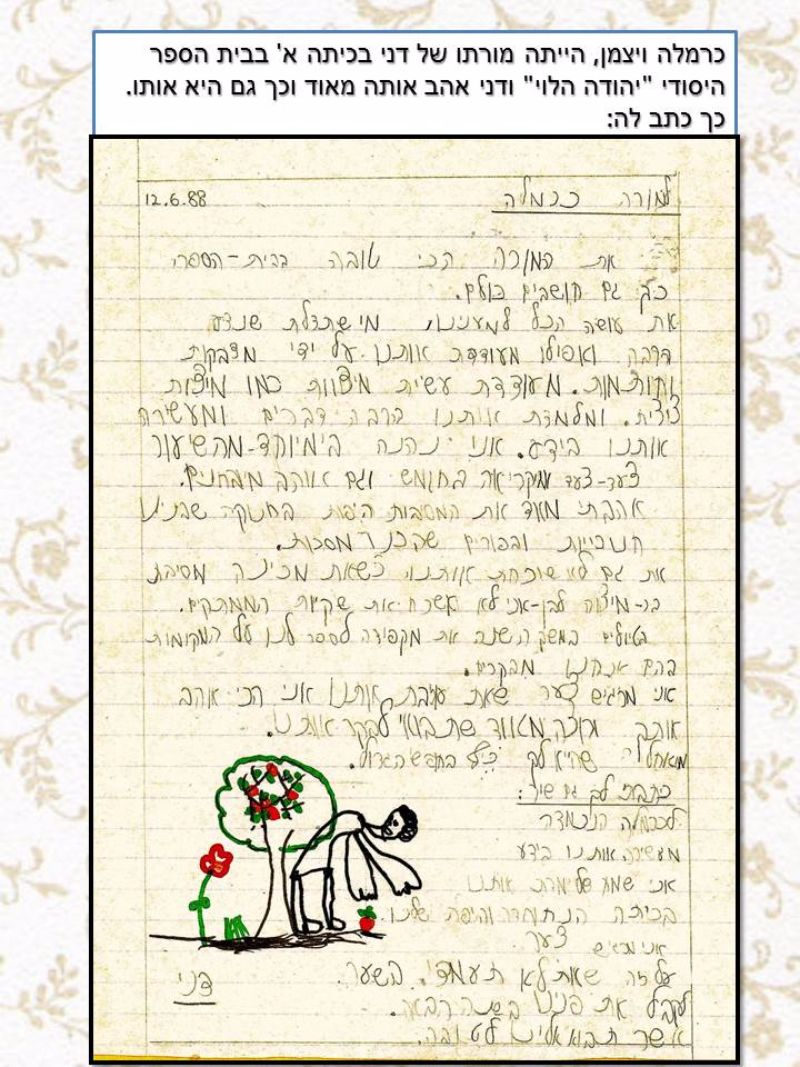 כרמלה ויצמן, הייתה מורתו של דני בכיתה א' בבית הספר
היסודי "יהודה הלוי" ודני אהב אותה מאוד וכך גם היא אותו.
כך כתב לה:
למורה כרמלה 12.6.88
את המורה הכי טובה בבית-הספר
כך גם חושבים כולם.
את עושה הכל למענינו, מישתדלת שנדע
הרבה ואפילו מעודדת אותנו על ידי מדבקות
וחותמות. מעודדת עשית מיצוות כמו מיצות
ציצית. ומלמדת אותנו הרבה דברים ומעשירה
אותנו בידע. אני נהנה בימיוחד מהשיעור
צעד-צעד ומקריאה בחומש וגם אוהב מיבחנים.
אהבתי מאד את המסבות היפות בחנוקה שבנינו
חנוכיות ובפורים שהכנו מסכות.
את גם לא שוכחת אותנו כשאת מכינה מסיבת
בר-מיצוה לבן-אני לא אשכח את שקיות הממתקים.
הטיולים במשך השנה את מקפידה לספר לנו על המקומות
בהם אנחנו מבקרים.
אני מרגיש צער שאת עוזבת אותנו אני הכי אוהב
אותך ורוצה מאוד שתבואי לבקר אותנו.
מאחל לך שיהיה לך כיף בחופש הגדול.
כתבתי לך גם שיר:
לכרמלה הנחמדה
מעשירה אותנו בידע
אני שמח שלימדת אותנו
בכיתה הנחמדה והיפה שלנו.
אני מרגיש צער
על זה שאת לא תעמדי בשער
לקבל את פנינו בשנה הבאה.
אשר תבוא אלינו לטובה.
דני